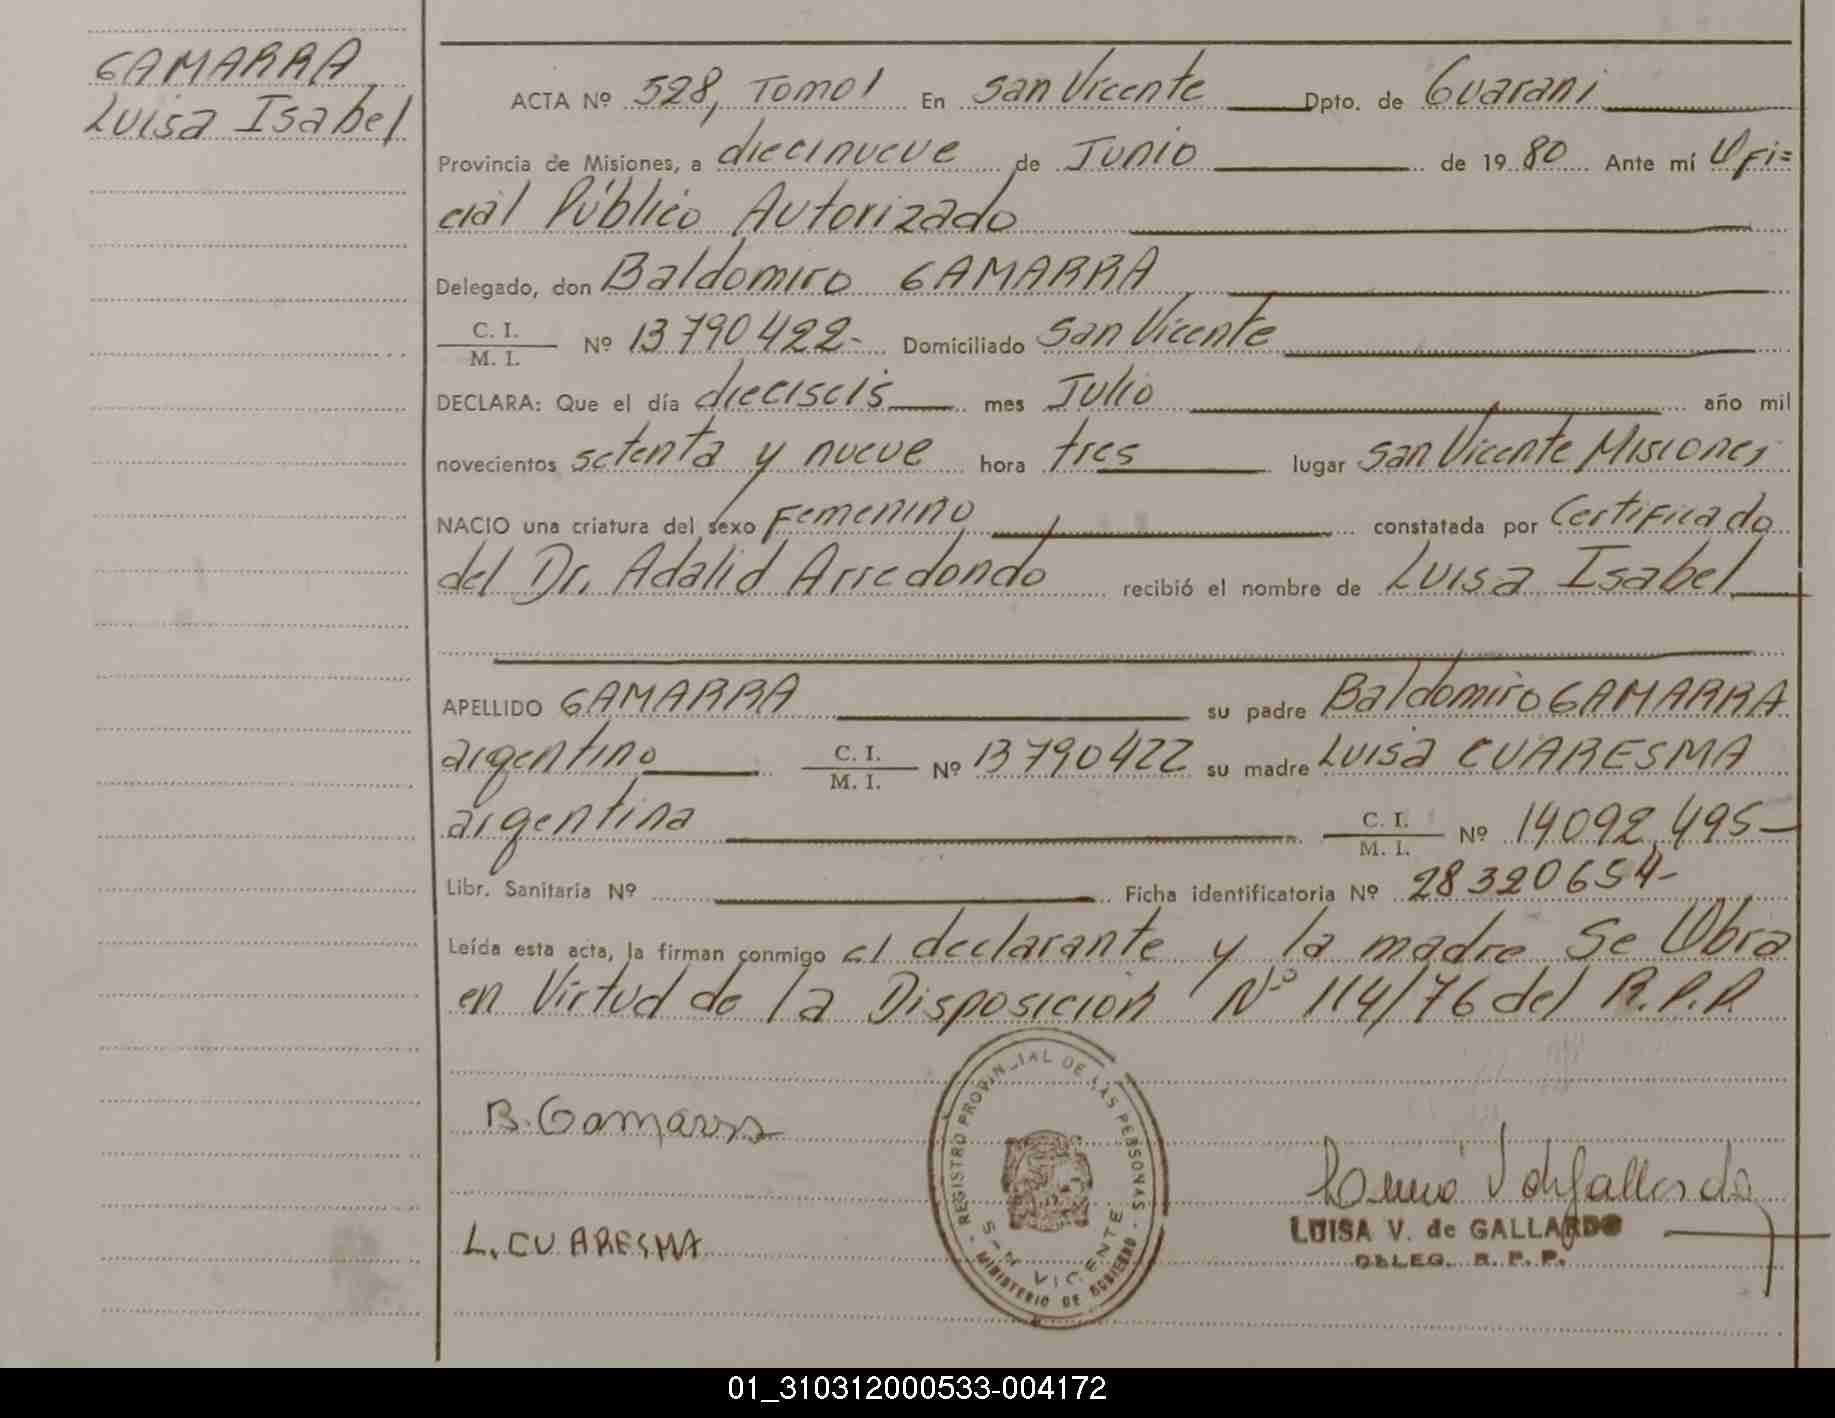 GAMARRA
Luisa Isabel
ACTA Nº 528, Tomo I En San Vicente Dpto. de Guarani
Provincia de Misiones, a diecinueve de Junio de 1980 Ante mí Ofi=
cial Público Autorizado
Delegado, don Baldomiro GAMARRA
C. I.
M. I. Nº 13790422- Domiciliado San Vicente
DECLARA: Que el día dieciseis mes Julio año mil
novecientos setenta y nueve hora tres lugar San Vicente Misiones
NACIO una criatura del sexo Femenino constatada por Certificado
del Dr. Adalid Arredondo recibió el nombre de Luisa Isabel
APELLIDO GAMARRA su padre Baldomiro GAMARRA
argentino C. I.
M. I. Nº 13790422 su madre Luisa CUARESMA
argentina C. I.
M. I. Nº 14092,495-
Libr. Sanitaria Nº Ficha identificatoria Nº 28320654-
Leída esta acta, la firman conmigo el declarante y la madre Se Obra
en Virtud de la Disposición Nº 114/76 del R.P.P.
B. Gamarra
L. CUARESMA
REGISTRO PROVINCIAL DE LAS PERSONAS
SAN VICENTE
MINISTERIO DE GOBIERNO
LUISA V. de GALLARDO
DELEG. R. P. P.
01_310312000533-004172